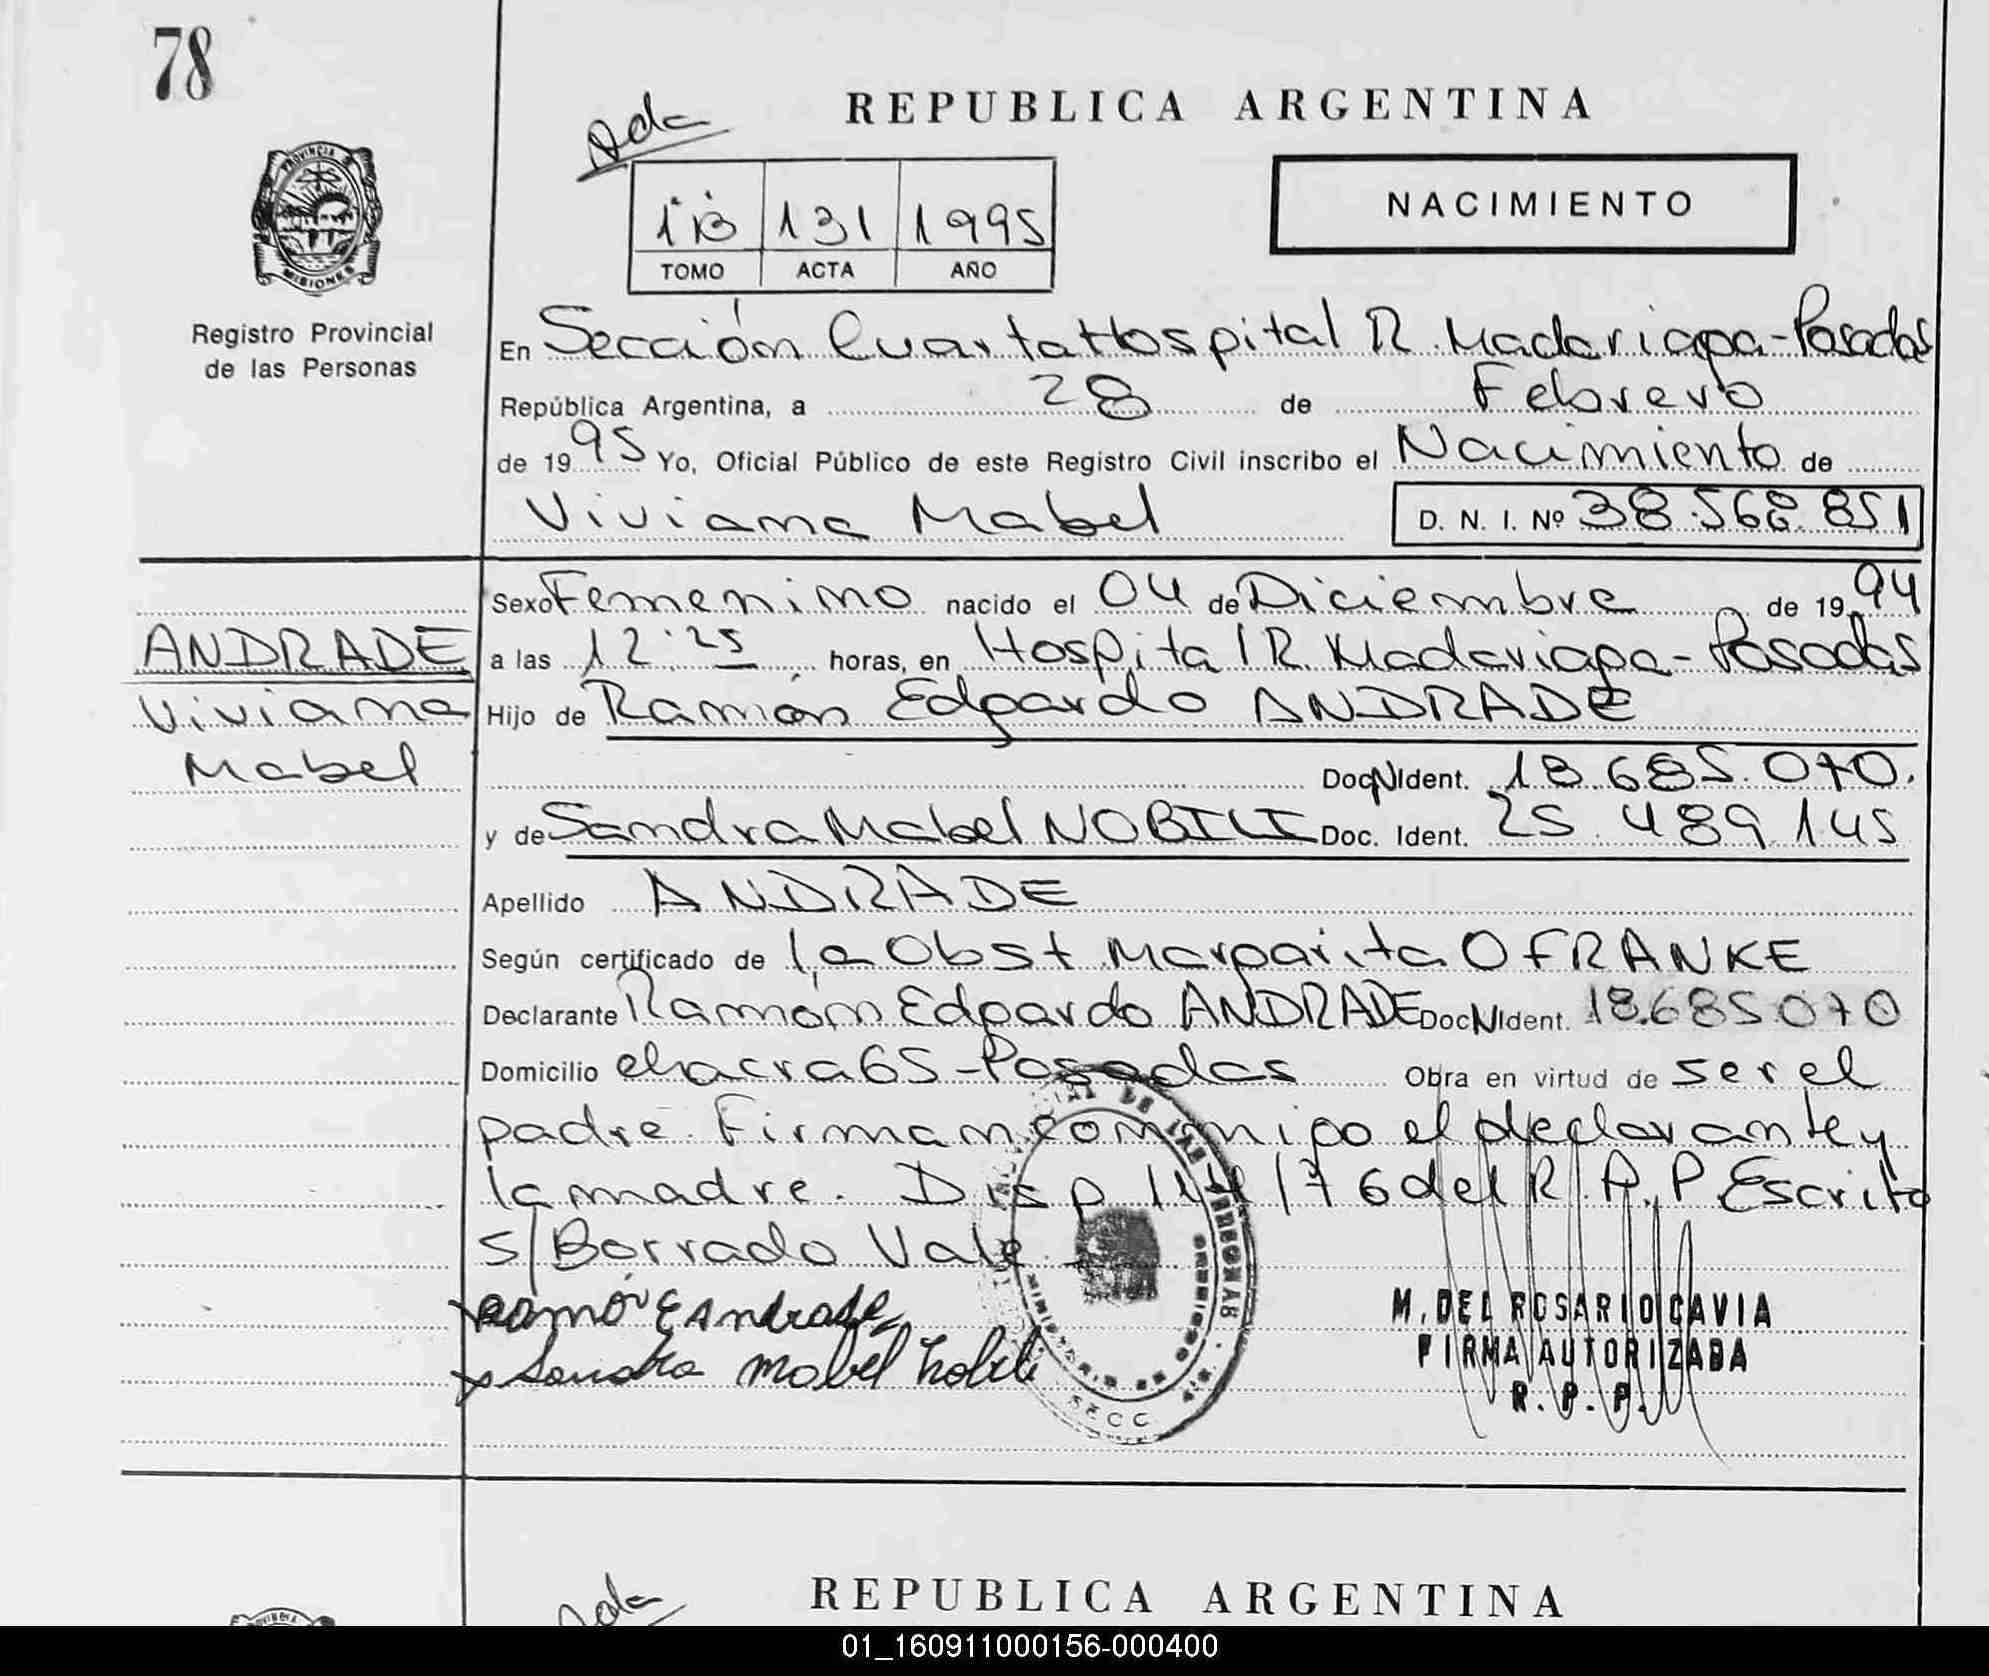 78
REPUBLICA ARGENTINA
Ada
NACIMIENTO
1°B 131 1995
TOMO ACTA AÑO
PROVINCIA DE MISIONES
Registro Provincial
de las Personas
En Sección Cuarta Hospital R. Madariaga - Posadas
República Argentina, a 28 de Febrero
de 1995 Yo, Oficial Público de este Registro Civil inscribo el Nacimiento de
Viviana Mabel D. N. I. Nº 38.568.851
Sexo Femenino nacido el 04 de Diciembre de 1994
a las 12:25 horas, en Hospital R. Madariaga - Posadas
Hijo de Ramón Edgardo ANDRADE
Doc N Ident. 18.685.070.
y de Sandra Mabel NOBILI Doc. Ident. 25.489.145
Apellido ANDRADE
Según certificado de la Obst Margarita O FRANKE
Declarante Ramón Edgardo ANDRADE Doc N Ident. 18.685.070
Domicilio chacra 65 - Posadas Obra en virtud de ser el
padre. Firman conmigo el declarante y
la madre. Disp /76 del R.P.P. Escrito
s/Borrado Vale
ANDRADE
Viviana
Mabel
Ramón E Andrade
Sandra Mabel Nobili
DE LAS PERSONAS
SECC
M. DEL ROSARIO CAVIA
FIRMA AUTORIZADA
R. P. P.
Ada
REPUBLICA ARGENTINA
01_160911000156-000400